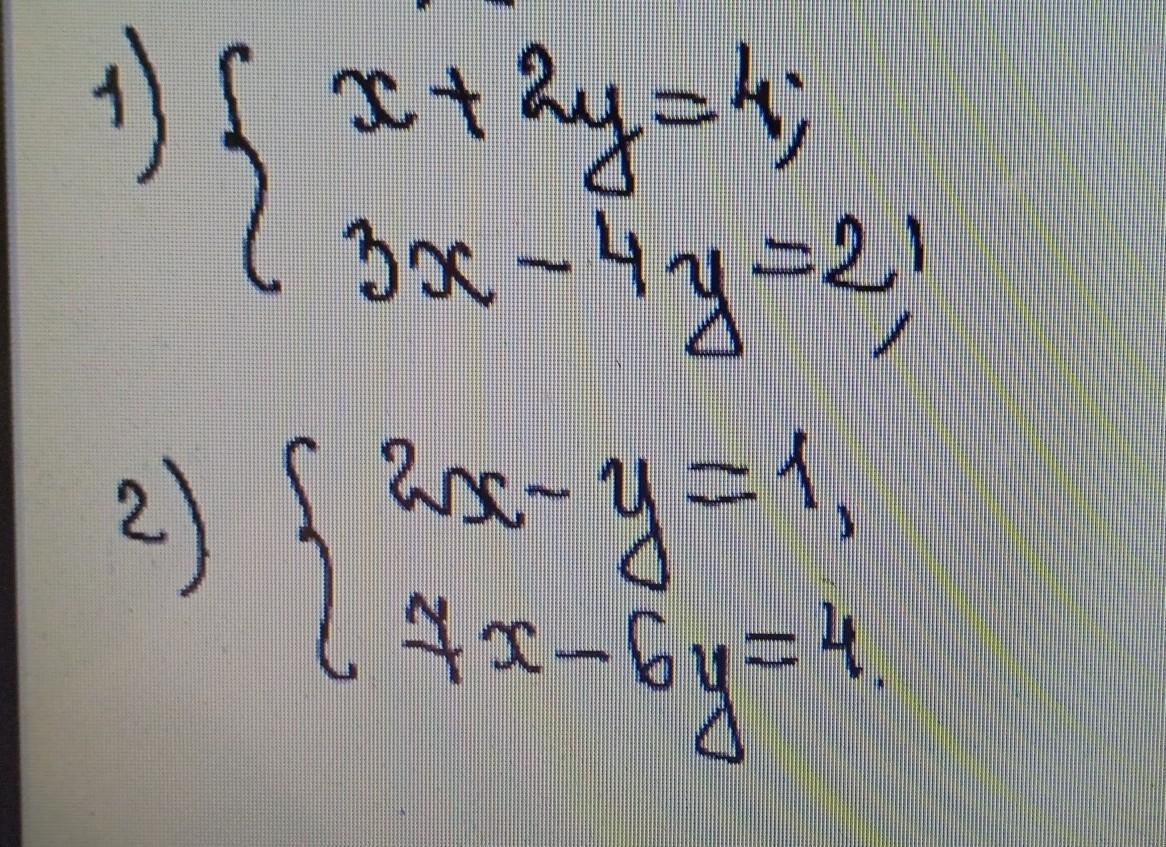 1) { x + 2y = 4;
3x - 4y = 2;
2) { 2x - y = 1,
7x - 6y = 4.